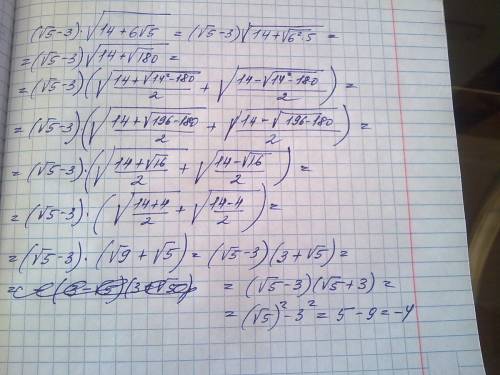 (√5-3)·√(14+6√5) = (√5-3)√(14+√(6²·5)) =
=(√5-3)√(14+√180) =
=(√5-3)(√((14+√(14²-180))/2) + √((14-√(14²-180))/2)) =
=(√5-3)(√((14+√(196-180))/2) + √((14-√(196-180))/2)) =
=(√5-3)·(√((14+√16)/2) + √((14-√16)/2)) =
=(√5-3)·(√((14+4)/2) + √((14-4)/2)) =
=(√5-3)·(√9+√5) = (√5-3)(3+√5) =
= = (√5-3)(√5+3) =
= (√5)²-3² = 5-9 = -4